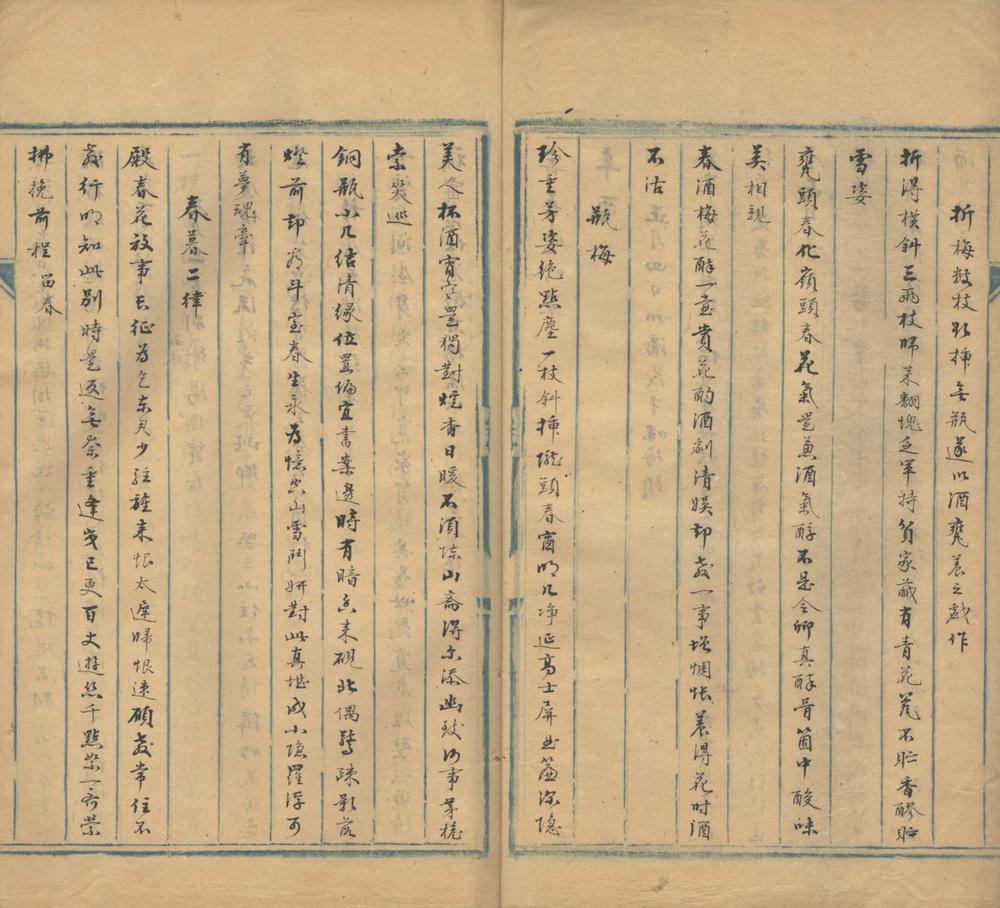 折梅數枝趾揷無瓶遂以酒甕養之戲作
折得橫斜三兩枝歸来翻愧乏軍持貧家藏有青花瓮不貯香醪貯
雪姿
甕頭春化嶺頭春花氣還兼酒氣醇不是令卿真醉骨箇中酸味
美相親
春酒梅花醉一壺賞花酌酒劇清娛却教一事增惆悵養得花时酒
不沽
瓶梅
珍重芳姿絶點塵一枝斜揷隴頭春窗明几净延高士屏曲簾深隐
美人杯酒宵寒還獨對爐香日暖不須陈山齋得尔添幽致何事茅檐
索笑巡
銅瓶小几结清缘位置偏宜書案邊時有暗香来硯北偶驚疎影落
燈前却看斗室春生永為憶空山雪鬥妍對此真堪成小隐羅浮可
有夢魂牽
春暮二律
殿春花放事長征為乞东君少駐旌来恨太遲歸恨速願教常住不
教行明知此别時還返無奈重逢歲已更百丈遊丝千點絮一齊縈
拂挽前程 留春